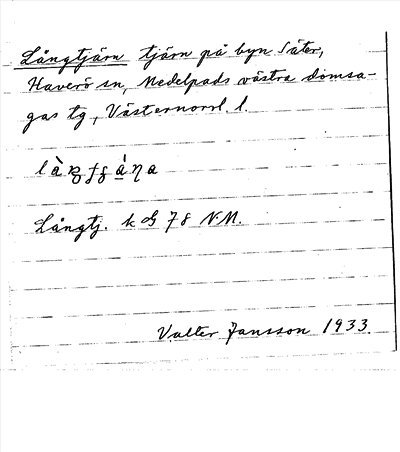 Långtjärn tjärn på byn Säter,
Haverö sn, Medelpads västra domsa-
gas tg, Västernorrl. l.
Långtj. k G 78 NM.
Valter Jansson 1933.